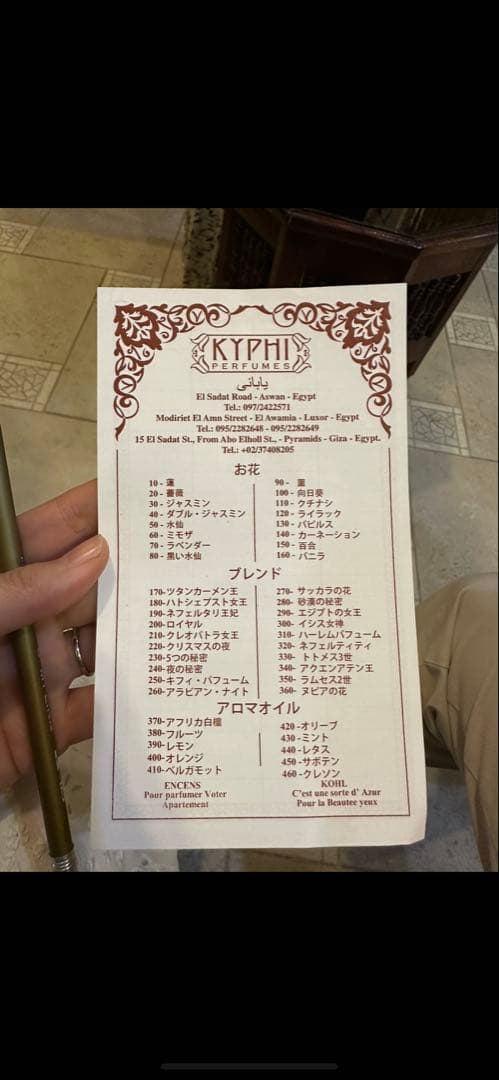 KYPHI
PERFUMES
ياباني
El Sadat Road - Aswan - Egypt
Tel.: 097/2422571
Modiriet El Amn Street - El Awamia - Luxor - Egypt
Tel.: 095/2282648 - 095/2282649
15 El Sadat St., From Abo Elholl St., - Pyramids - Giza - Egypt.
Tel.: +02/37408205
お花
10 - 蓮
20 - 薔薇
30 - ジャスミン
40 - ダブル・ジャスミン
50 - 水仙
60 - ミモザ
70 - ラベンダー
80 - 黒い水仙
90 - 菫
100 - 向日葵
110 - クチナシ
120 - ライラック
130 - パピルス
140 - カーネーション
150 - 百合
160 - バニラ
ブレンド
170-ツタンカーメン王
180-ハトシェプスト女王
190-ネフェルタリ王妃
200-ロイヤル
210-クレオパトラ女王
220-クリスマスの夜
230-5つの秘密
240-夜の秘密
250-キフィ・パフューム
260-アラビアン・ナイト
270- サッカラの花
280- 砂漠の秘密
290- エジプトの女王
300- イシス女神
310- ハーレムパフューム
320- ネフェルティティ
330- トトメス3世
340- アクエンアテン王
350- ラムセス2世
360- ヌビアの花
アロマオイル
370-アフリカ白檀
380-フルーツ
390-レモン
400-オレンジ
410-ベルガモット
420 -オリーブ
430 -ミント
440 -レタス
450 -サボテン
460 -クレソン
ENCENS
Pour parfumer Voter
Apartement
KOHL
C'est une sorte d' Azur
Pour la Beautee yeux